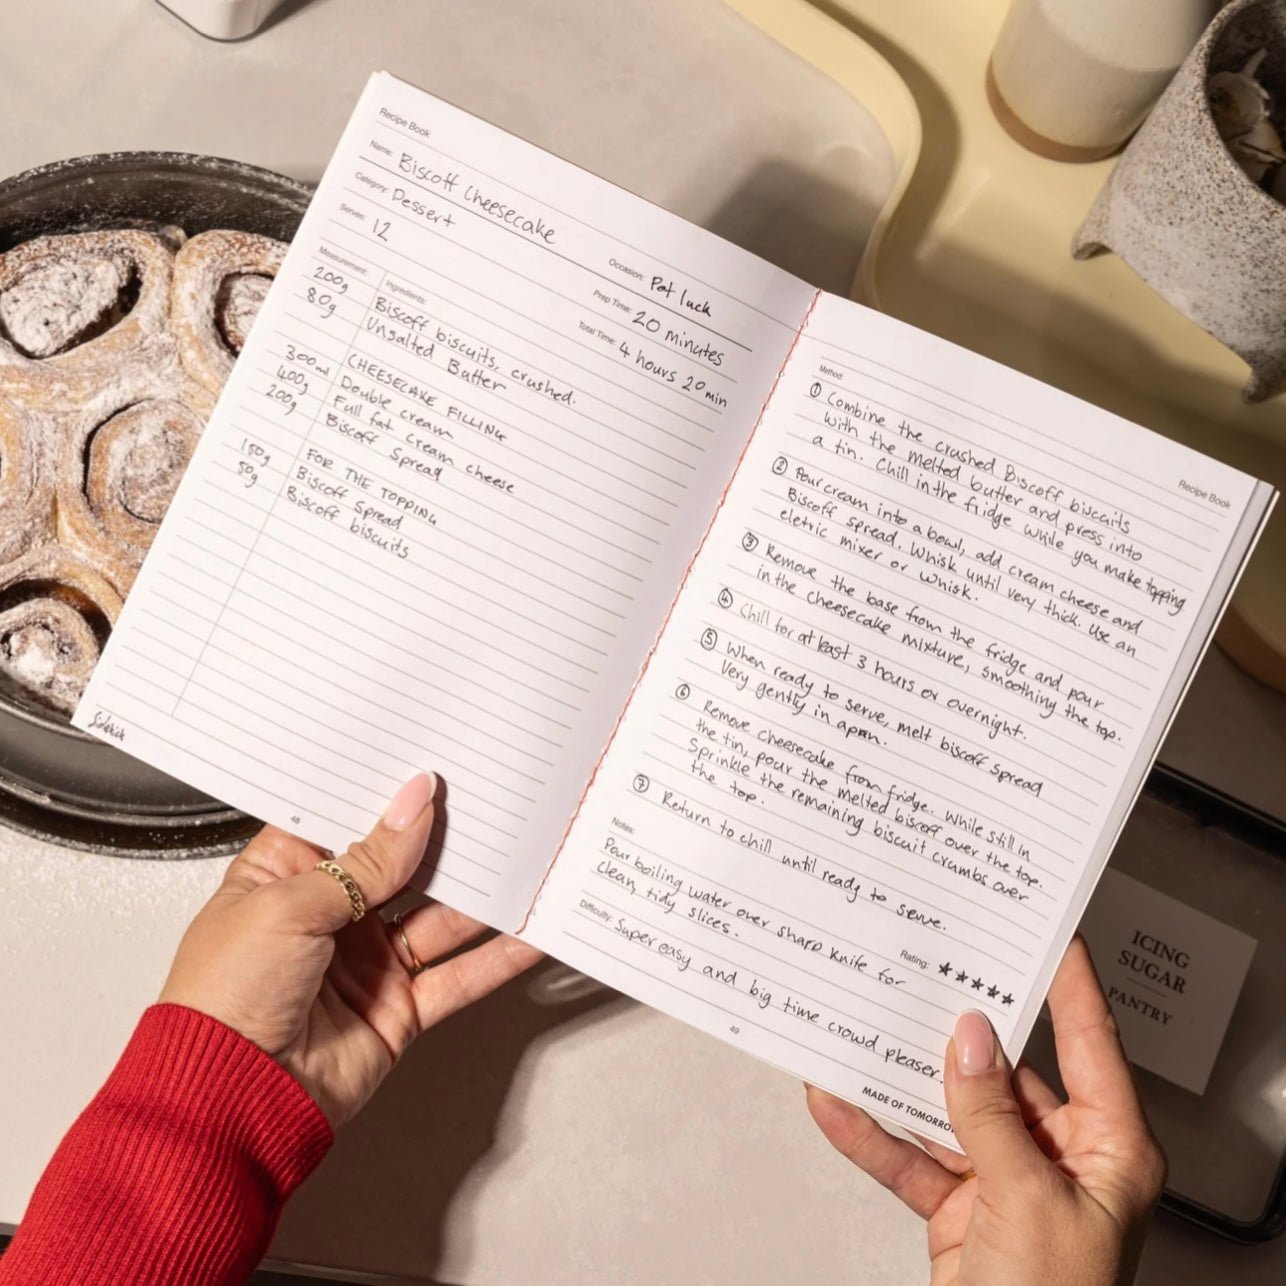 Recipe Book
Name: Biscoff Cheesecake
Category: Dessert
Serves: 12
Occasion: Pot luck
Prep Time: 20 minutes
Total Time: 4 hours 20 min
Measurement: Ingredients:
200g Biscoff biscuits, crushed.
80g Unsalted Butter
CHEESECAKE FILLING
300ml Double cream
400g Full fat cream cheese
200g Biscoff Spread
FOR THE TOPPING
150g Biscoff Spread
50g Biscoff biscuits
Sidekick
48
Recipe Book
Method:
① Combine the crushed Biscoff biscuits
with the melted butter and press into
a tin. Chill in the fridge while you make topping
② Pour cream into a bowl, add cream cheese and
Biscoff spread. Whisk until very thick. Use an
eletric mixer or whisk.
③ Remove the base from the fridge and pour
in the cheesecake mixture, smoothing the top.
④ Chill for at least 3 hours or overnight.
⑤ When ready to serve, melt biscoff spread
very gently in a pan.
⑥ Remove cheesecake from fridge. While still in
the tin, pour the melted biscoff over the top.
Sprinkle the remaining biscuit crumbs over
the top.
⑦ Return to chill until ready to serve.
Notes:
Pour boiling water over sharp knife for
clean, tidy slices.
Rating: ★★★★★
Difficulty: Super easy and big time crowd pleaser.
49
MADE OF TOMORROW
ICING
SUGAR
PANTRY